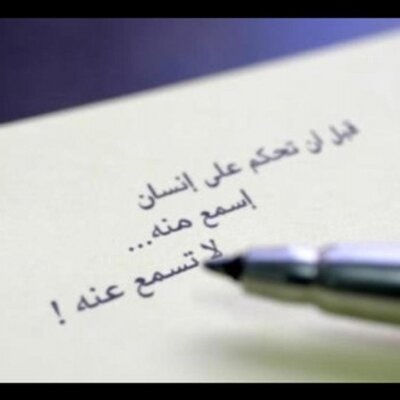 قبل أن تحكم على إنسان
إسمع منه...
لا تسمع عنه !